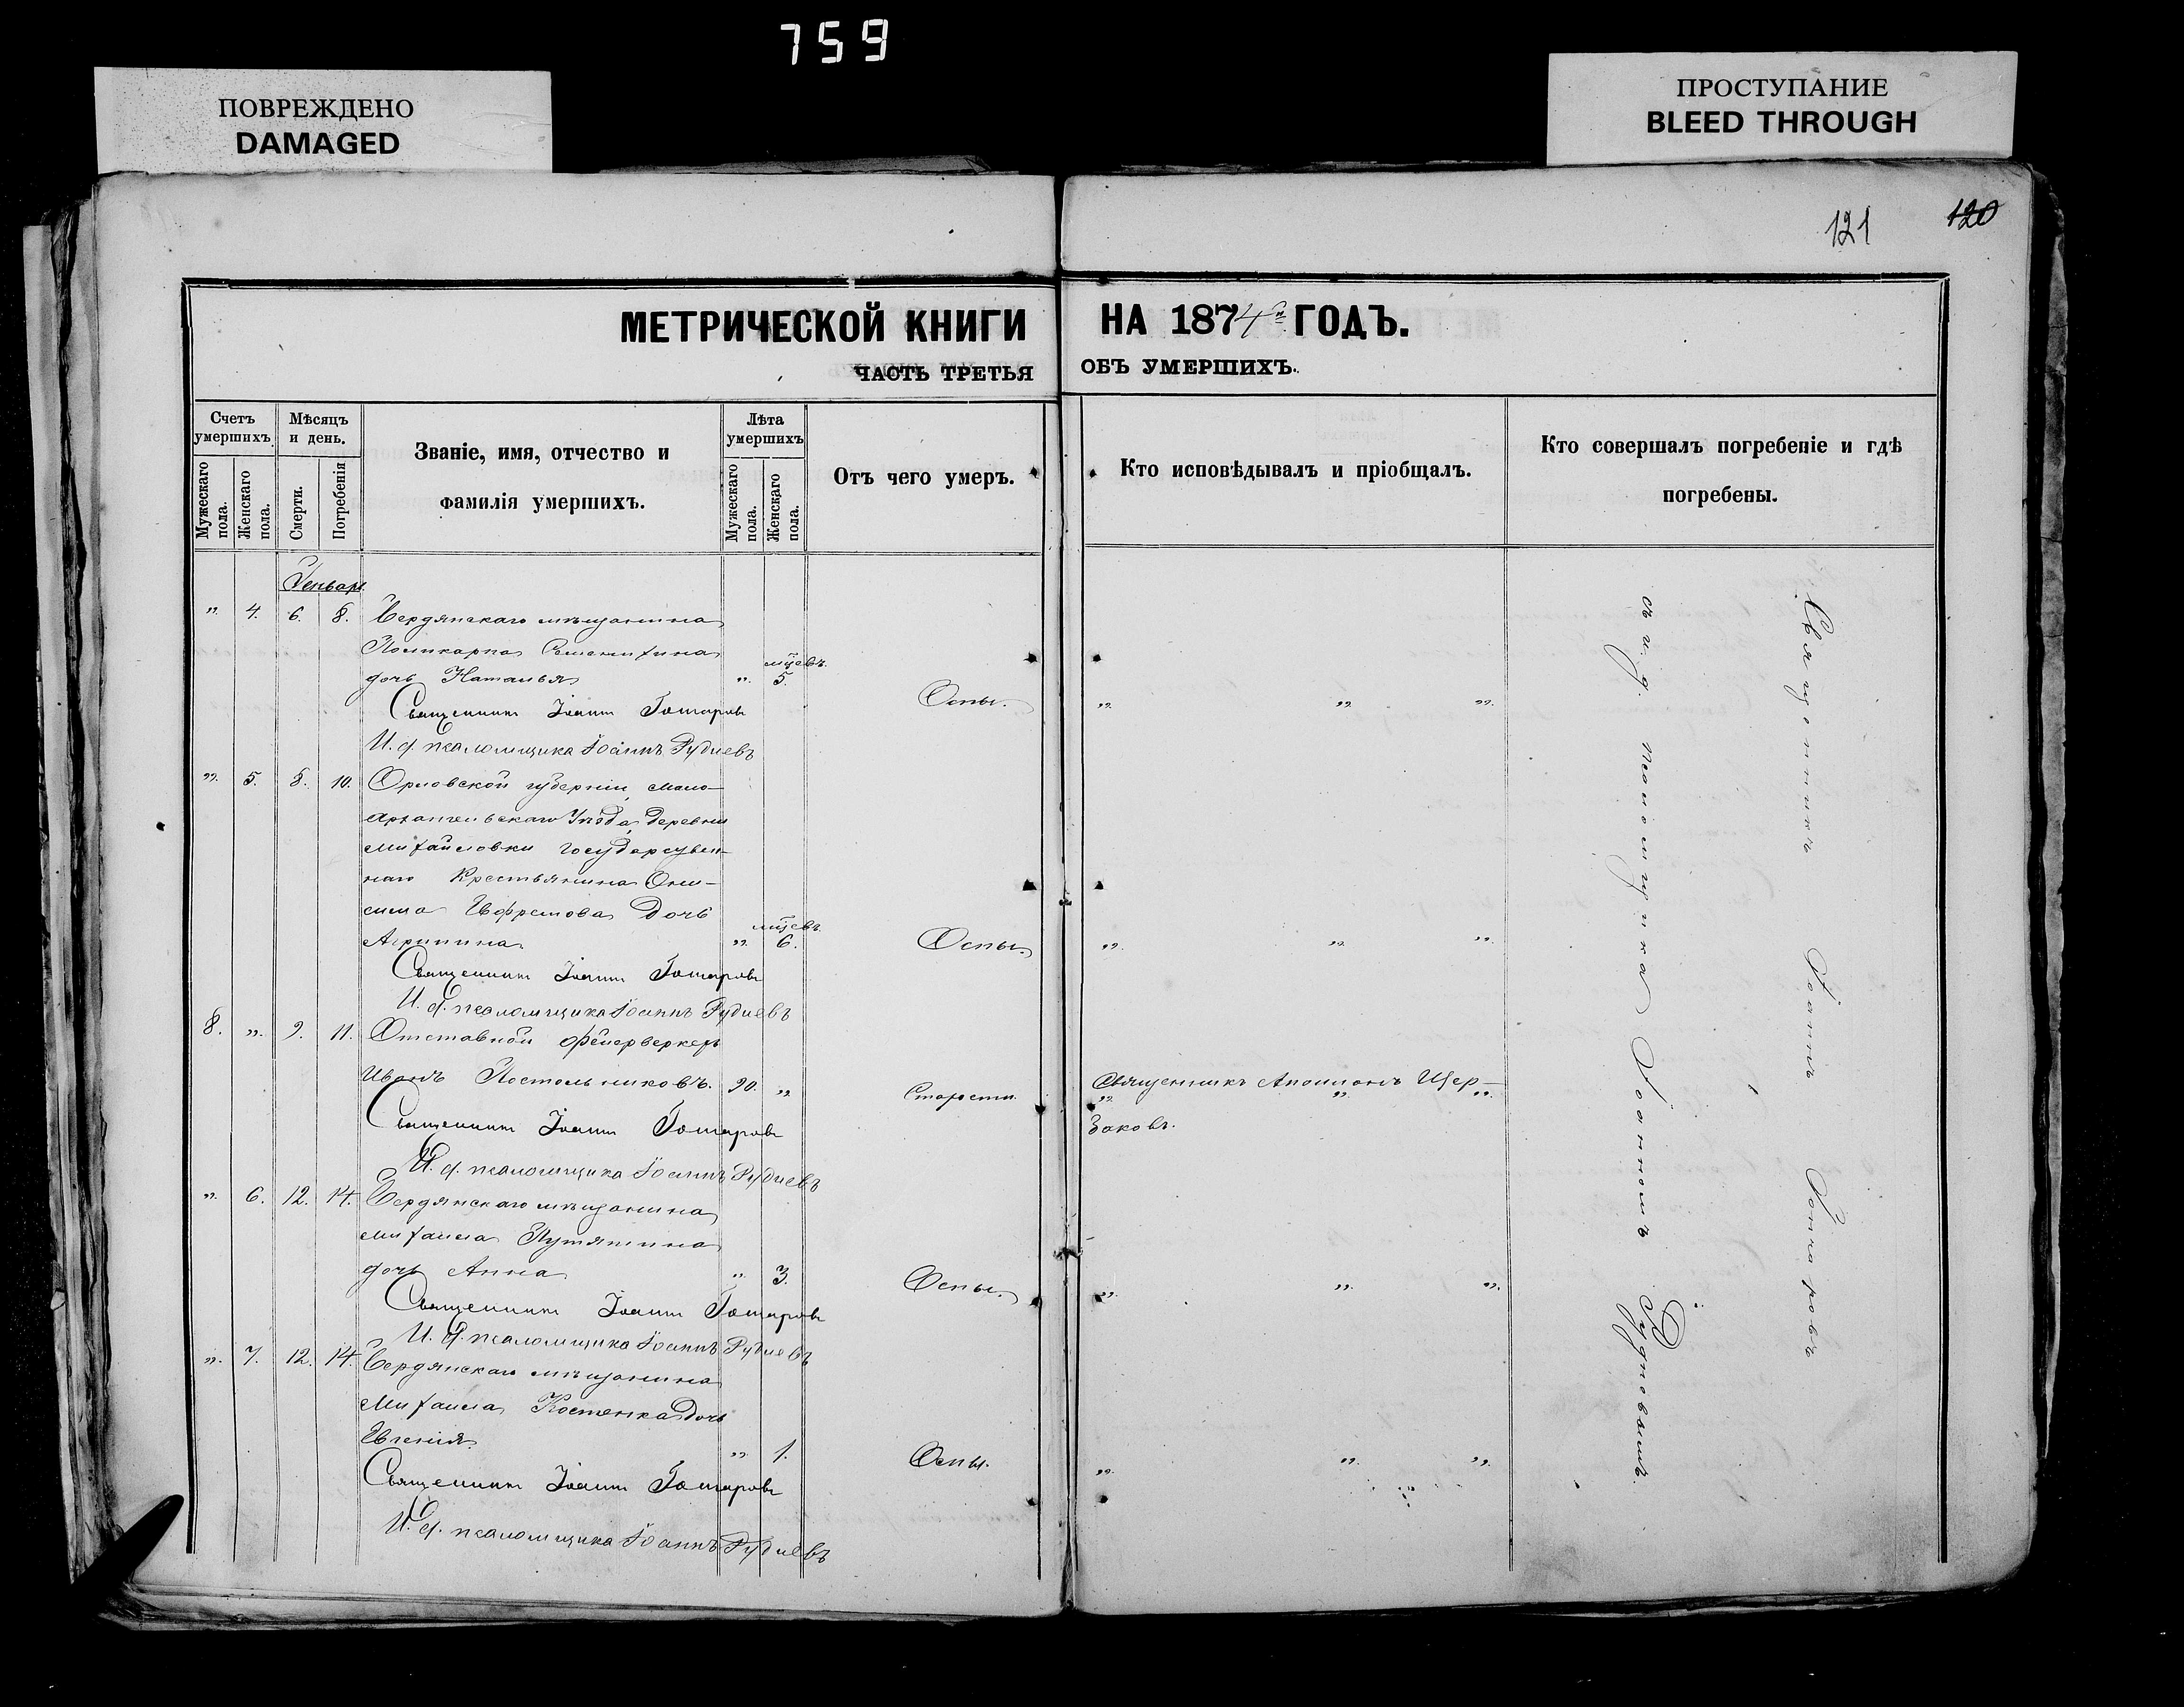 759
ПОВРЕЖДЕНО
DAMAGED
ПРОСТУПАНИЕ
BLEED THROUGH
121
120
МЕТРИЧЕСКОЙ КНИГИ НА 1874й ГОДЪ.
ЧАСТЬ ТРЕТЬЯ ОБЪ УМЕРШИХЪ.
Счетъ умершихъ
Мужескаго пола.
Женскаго пола.
Мѣсяцъ и день.
Смерти.
Погребенія
Званіе, имя, отчество и
фамилія умершихъ.
Лѣта умершихъ
Мужескаго пола.
Женскаго пола.
Отъ чего умеръ.
Кто исповѣдывалъ и пріобщалъ.
Кто совершалъ погребеніе и гдѣ
погребены.
Генварь
" 4. 6. 8. Бердянскаго мѣщанина
Поликарпа
дочь Наталья " мцевъ. 5. Оспы. " " "
Священникъ Іоаннъ Гончаровъ
И. д. псаломщика Іоаннъ Рудневъ
" 5. 8. 10. Орловской губерніи, мало-
архангельскаго уѣзда, деревни
Михайловки государствен-
наго крестьянина Они-
сима Ефремова дочь
Агрипина " мцевъ. 6. Оспы. " " "
Священникъ Іоаннъ Гончаровъ
И. д. псаломщика Іоаннъ Рудневъ
8. " 9. 11. Отставной фейерверкеръ
Иванъ Постольниковъ. 90. " Старости. Священникъ Аполлонъ Щер-
баковъ.
Священникъ Іоаннъ Гончаровъ
И. д. псаломщика Іоаннъ Рудневъ
" 6. 12. 14. Бердянскаго мѣщанина
Михаила Путятина
дочь Анна " 3. Оспы. " " "
Священникъ Іоаннъ Гончаровъ
И. д. псаломщика Іоаннъ Рудневъ
" 7. 12. 14. Бердянскаго мѣщанина
Михаила Костенка дочь
Евгенія. " 1. Оспы. " " "
Священникъ Іоаннъ Гончаровъ
И. д. псаломщика Іоаннъ Рудневъ
Священникъ Іоаннъ Гончаровъ
съ и. д. псаломщика Іоанномъ Рудневымъ.